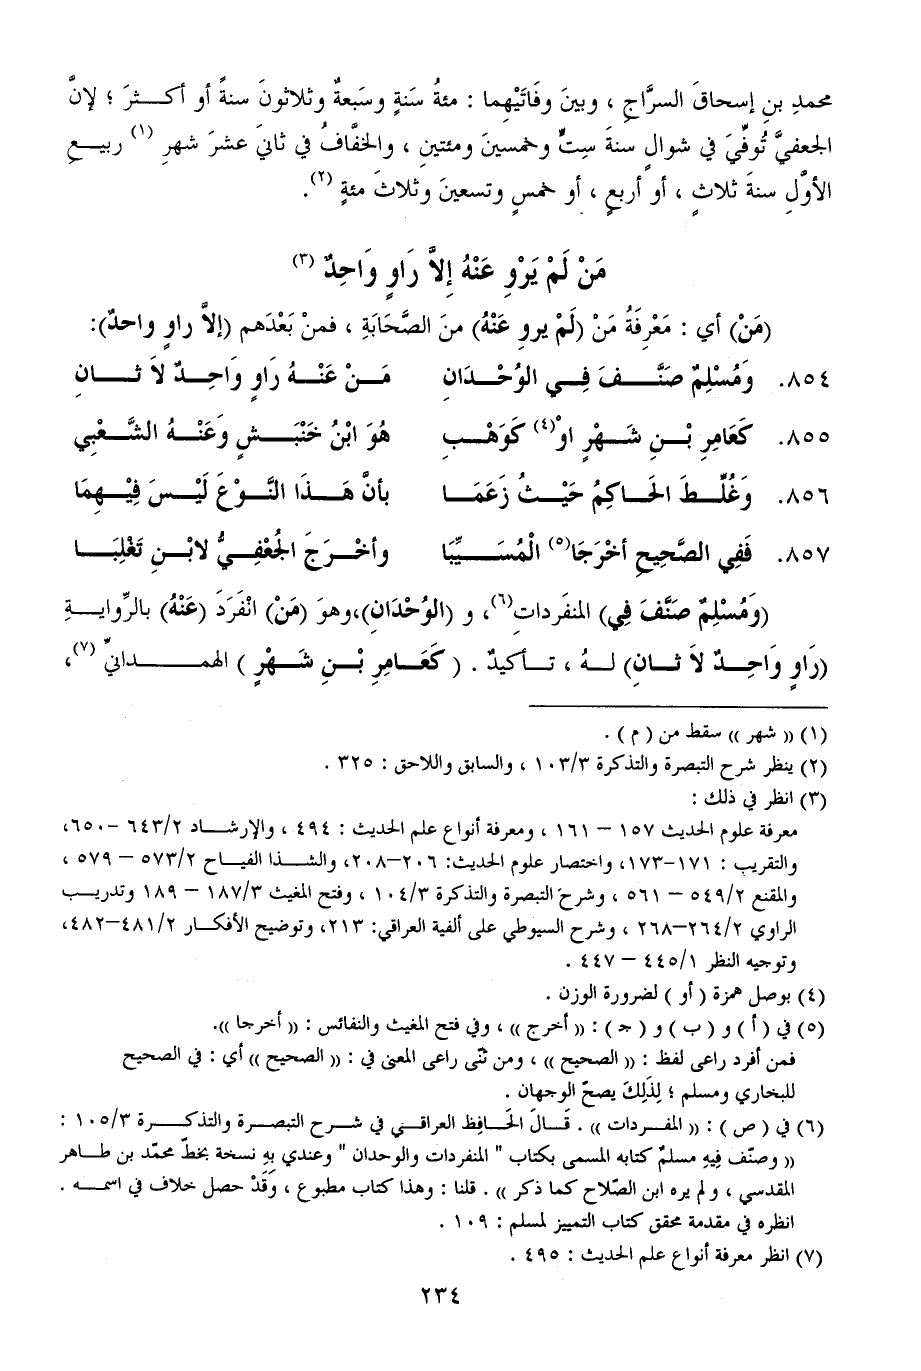 محمدِ بنِ إسحاقَ السرَّاجِ ، وبينَ وفَاتَيْهِما : مئةُ سَنةٍ وسَبعةٌ وثلاثونَ سنةً أو أكـــثرَ ؛ لإنَّ
الجعفيَّ تُوفِّيَ في شوالٍ سنةَ سِتٍّ وخمسينَ ومئتينِ ، والخفَّافُ في ثانيَ عشرَ شهرِ (١) ربيـــعٍ
الأوَّلِ سنةَ ثلاثٍ ، أو أربعٍ ، أو خمسٍ وتسعينَ وثلاثَ مئةٍ (٢).
مَنْ لَمْ يَرْوِ عَنْهُ إلاَّ رَاوٍ وَاحِدٌ (٣)
(مَنْ) أي : مَعْرفَةُ مَنْ (لَمْ يروِ عَنْهُ) منَ الصَّحَابَةِ ، فمنْ بَعْدَهم (إلاَّ راوٍ واحدٌ):
٨٥٤. وَمُسْلِمٌ صَنَّـــفَ فِـــي الوُحْـــدَانِ مَـــنْ عَنْـــهُ رَاوٍ وَاحِـــدٌ لاَ ثـــانِ
٨٥٥. كَعَامِرِ بْـــنِ شَـــهْرٍ اوْ(٤) كَوَهْـــبِ هُوَ ابْنُ خَنْبَـــشٍ وَعَنْـــهُ الشَّـــعْبِي
٨٥٦. وَغُلِّـــطَ الحَـــاكِمُ حَيْـــثُ زَعَمَـــا بأنَّ هَـــذَا النَّـــوْعَ لَيْـــسَ فِيْـــهِمَا
٨٥٧. فَفِي الصَّحِيحِ أخْرَجَا(٥) الْمُسَـــيِّبَا وأخْـــرَجَ الجُعْفِـــيُّ لابْـــنِ تَغْلِبَـــا
(وَمُسْلِمٌ صَنَّفَ فِي) المنفَرداتِ(٦)، و (الوُحْدَانِ)،وهوَ (مَنْ) انْفَرَدَ (عَنْهُ) بالرِّوايـــةِ
(رَاوٍ وَاحِـــدٌ لاَ ثـــانٍ) لـــهُ ، تـــأكيدٌ . ( كَعَـــامِرِ بْـــنِ شَـــهْرٍ ) الهمـــدانيِّ (٧)،
(١) « شهر » سقط من ( م ) .
(٢) ينظر شرح التبصرة والتذكرة ١٠٣/٣ ، والسابق واللاحق : ٣٢٥ .
(٣) انظر في ذلك :
معرفة علوم الحديث ١٥٧ – ١٦١ ، ومعرفة أنواع علم الحديث : ٤٩٤ ، والإرشـــاد ٦٤٣/٢ –٦٥٠،
والتقريب : ١٧١–١٧٣، واختصار علوم الحديث: ٢٠٦–٢٠٨، والشـــذا الفيـــاح ٥٧٣/٢ – ٥٧٩ ،
والمقنع ٥٤٩/٢ – ٥٦١ ، وشرح التبصرة والتذكرة ١٠٤/٣ ، وفتح المغيث ١٨٧/٣ – ١٨٩ وتدريـــب
الراوي ٢٦٤/٢–٢٦٨ ، وشرح السيوطي على ألفية العراقي: ٢١٣، وتوضيح الأفكـــار ٤٨١/٢–٤٨٢،
وتوجيه النظر ٤٤٥/١ – ٤٤٧ .
(٤) بوصل همزة ( أو ) لضرورة الوزن .
(٥) في ( أ ) و ( ب ) و ( جـ ) : « أخرج » ، وفي فتح المغيث والنفائس : « أخرجا ».
فمن أفرد راعى لفظ : « الصحيح » ، ومن ثنّى راعى المعنى في : « الصحيح » أي : في الصحيح
للبخاري ومسلم ؛ لِذَلِكَ يصحّ الوجهان .
(٦) في ( ص ) : « المفـــردات » . قَـــالَ الحَـــافِظ العراقـــي في شـــرح التبصـــرة والتذكـــرة ١٠٥/٣ :
« وصنّف فِيهِ مسلمٌ كتابه المسمى بكتاب " المنفردات والوحدان " وعندي بِهِ نسخة بخطّ محمّد بن طـــاهر
المقدسي ، ولم يره ابن الصّلاح كما ذكر » . قلنا : وهذا كتاب مطبوع ، وَقَدْ حصل خلاف في اسمـــه .
انظره في مقدمة محقق كتاب التمييز لمسلم : ١٠٩ .
(٧) انظر معرفة أنواع علم الحديث : ٤٩٥ .
٢٣٤